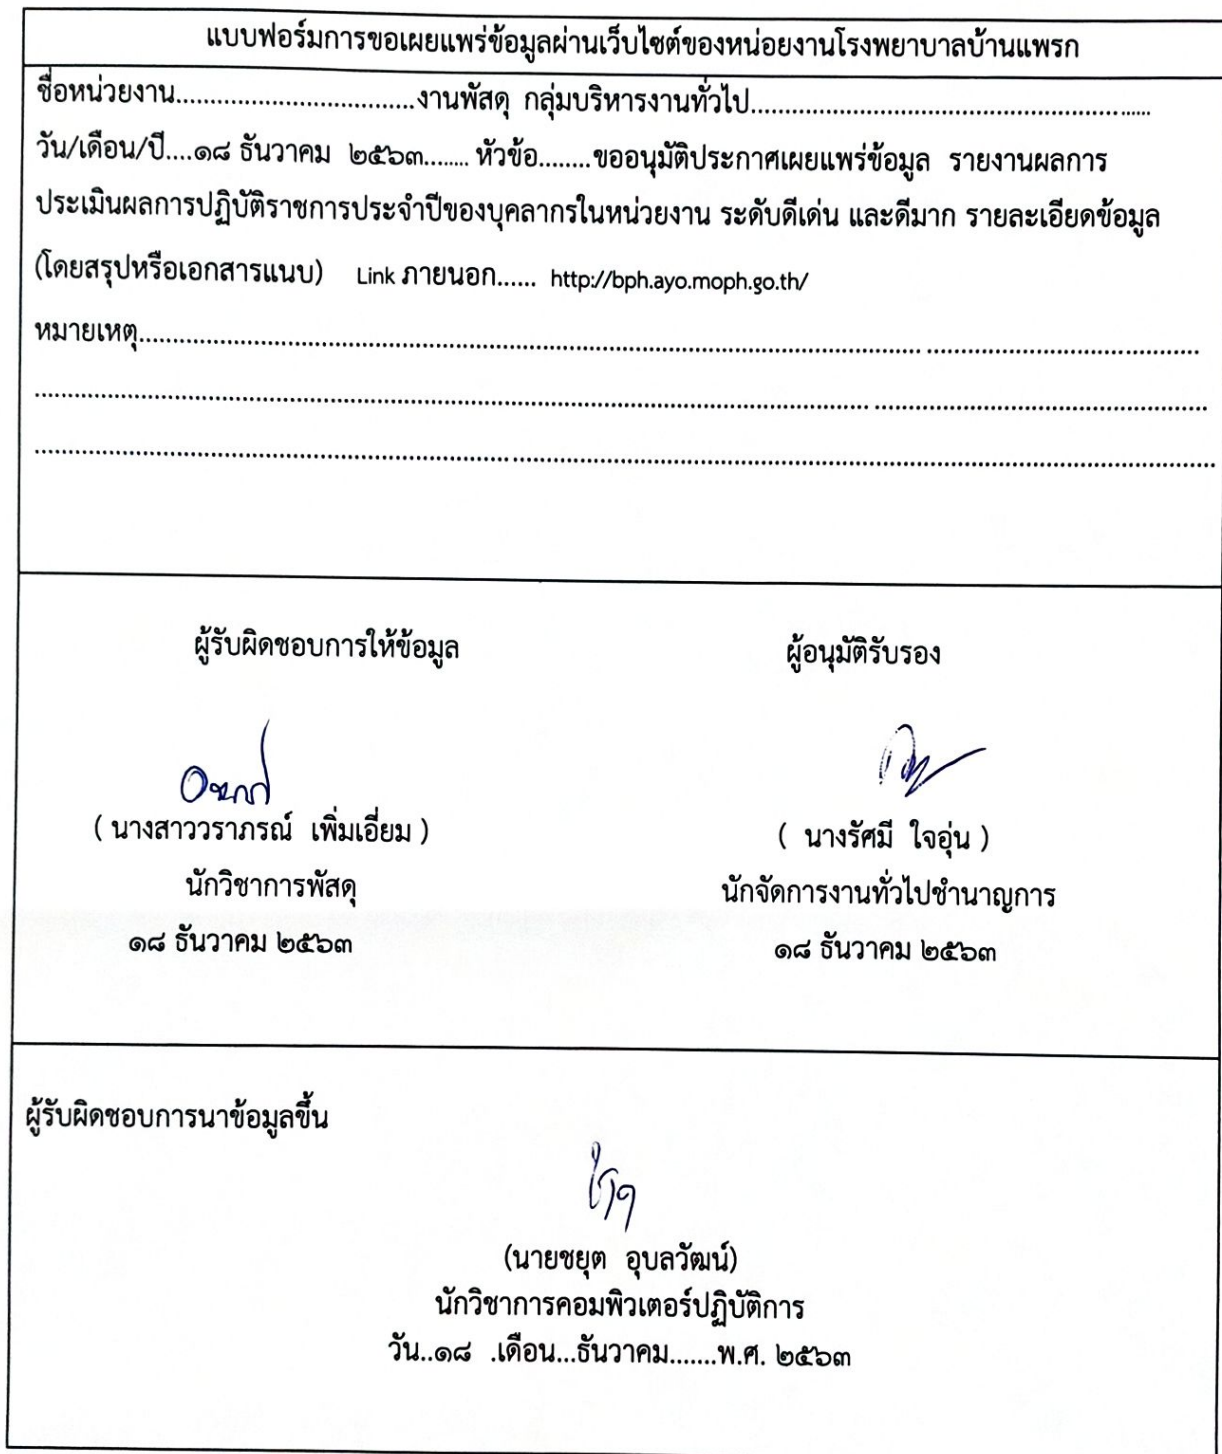 แบบฟอร์มการขอเผยแพร่ข้อมูลผ่านเว็บไซต์ของหน่อยงานโรงพยาบาลบ้านแพรก
ชื่อหน่วยงาน....................................งานพัสดุ กลุ่มบริหารงานทั่วไป................................................................
วัน/เดือน/ปี....๑๘ ธันวาคม ๒๕๖๓........ หัวข้อ........ขออนุมัติประกาศเผยแพร่ข้อมูล รายงานผลการ
ประเมินผลการปฏิบัติราชการประจำปีของบุคลากรในหน่วยงาน ระดับดีเด่น และดีมาก รายละเอียดข้อมูล
(โดยสรุปหรือเอกสารแนบ) Link ภายนอก...... http://bph.ayo.moph.go.th/
หมายเหตุ....................................................................................................................................
ผู้รับผิดชอบการให้ข้อมูล ผู้อนุมัติรับรอง
( นางสาววราภรณ์ เพิ่มเอี่ยม ) ( นางรัศมี ใจอุ่น )
นักวิชาการพัสดุ นักจัดการงานทั่วไปชำนาญการ
๑๘ ธันวาคม ๒๕๖๓ ๑๘ ธันวาคม ๒๕๖๓
ผู้รับผิดชอบการนาข้อมูลขึ้น
(นายชยุต อุบลวัฒน์)
นักวิชาการคอมพิวเตอร์ปฏิบัติการ
วัน..๑๘ .เดือน...ธันวาคม.......พ.ศ. ๒๕๖๓